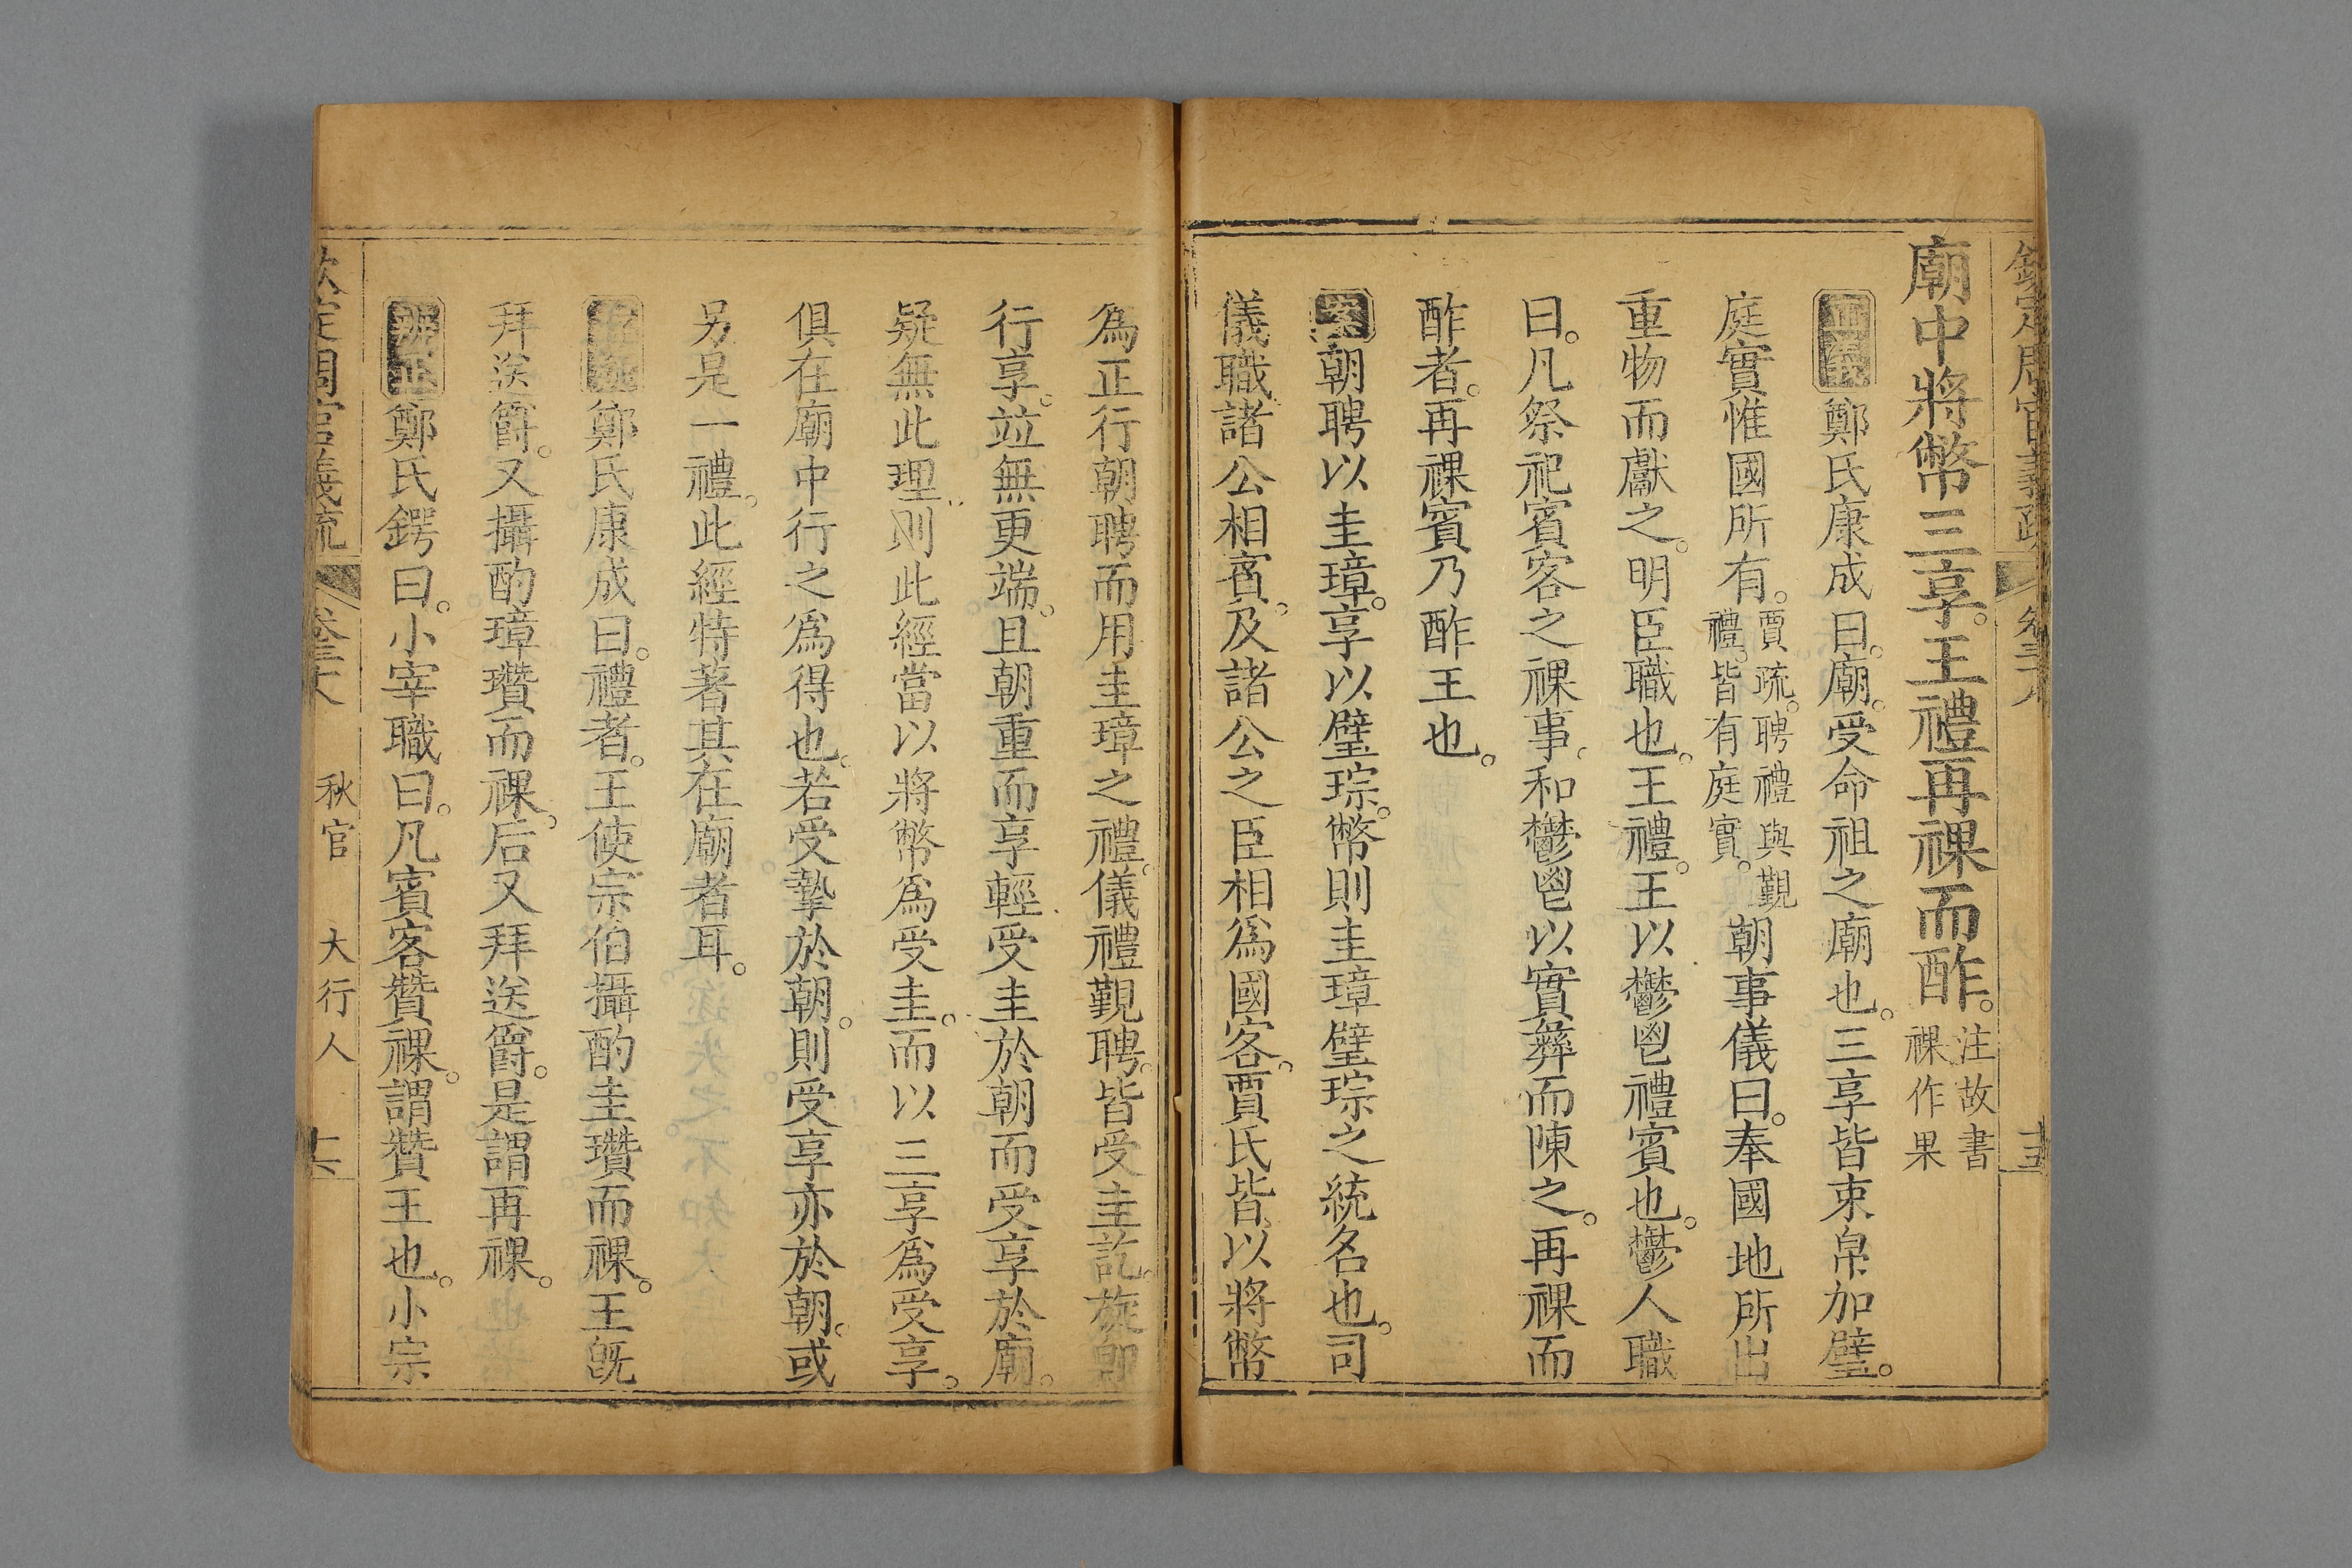 欽定周官義疏 卷三十八
廟中將幣三享。王禮再祼而酢。注故書祼作果
正義鄭氏康成曰。廟。受命祖之廟也。三享皆束帛加璧。
庭實惟國所有。賈疏。聘禮與覲禮。皆有庭實。朝事儀曰。奉國地所出
重物而獻之。明臣職也。王禮。王以鬱鬯禮賓也。鬱人職
曰。凡祭祀賓客之祼事。和鬱鬯以實彝而陳之。再祼而
酢者。再祼賓乃酢王也。
案朝聘以圭璋。享以璧琮。幣則圭璋璧琮之統名也。司
儀職諸公相賓。及諸公之臣相爲國客。賈氏皆以將幣
爲正行朝聘而用圭璋之禮。儀禮覲聘。皆受圭訖。旋卽
行享。竝無更端。且朝重而享輕。受圭於朝而受享於廟。
疑無此理。則此經當以將幣爲受圭。而以三享爲受享。
俱在廟中行之爲得也。若受摯於朝。則受享亦於朝。或
另是一禮。此經特著其在廟者耳。
鄭氏康成曰。禮者。王使宗伯攝酌圭瓚而祼。王旣
拜送爵。又攝酌璋瓚而祼。后又拜送爵。是謂再祼。
辨正鄭氏鍔曰。小宰職曰。凡賓客贊祼。謂贊王也。小宗
欽定周官義疏 卷三十八 秋官 大行人